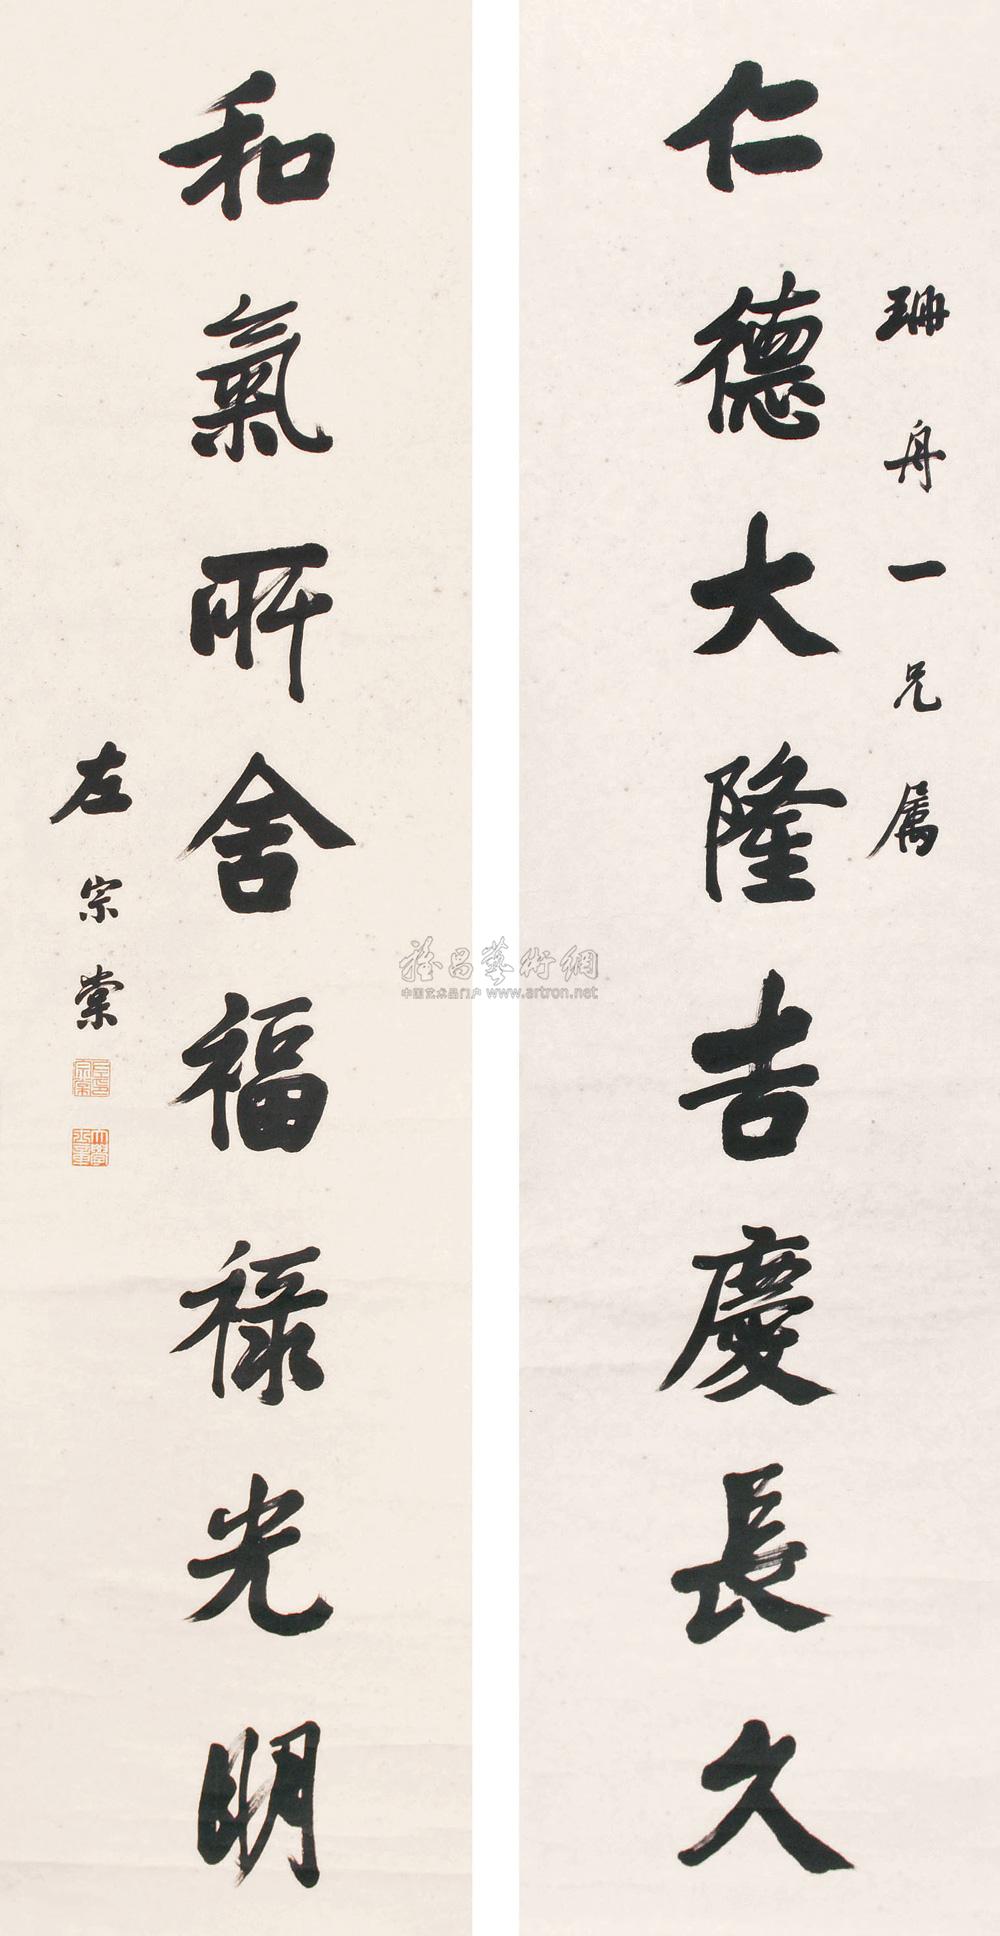 珊舟一兄属
仁德大隆吉慶長久
和氣所舍福禄光明
左宗棠
雅昌藝術網
中国艺术品门户 www.artron.net